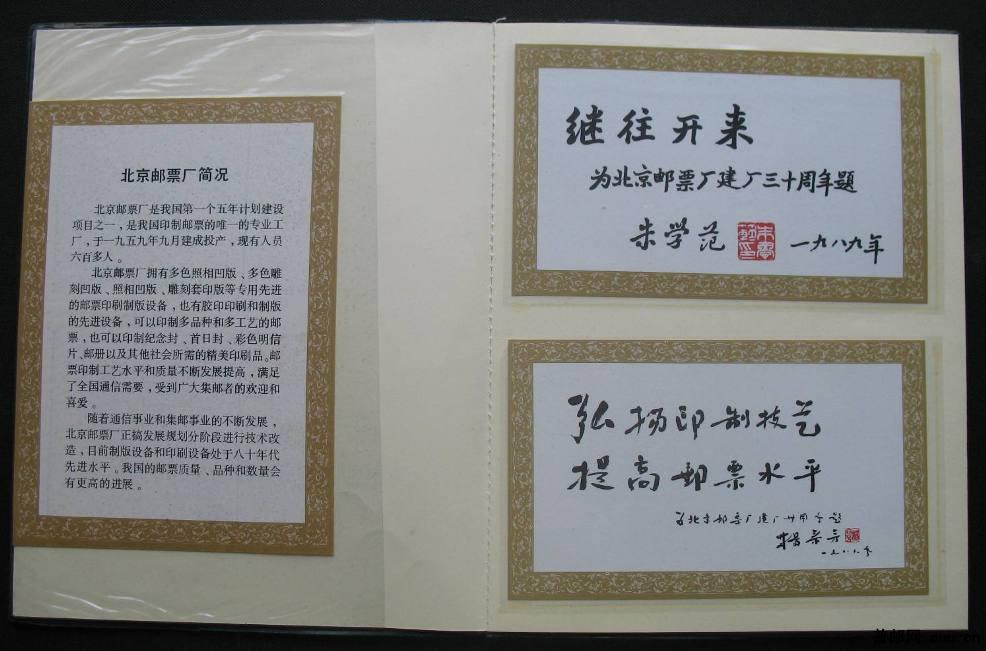 北京邮票厂简况
北京邮票厂是我国第一个五年计划建设
项目之一，是我国印制邮票的唯一的专业工
厂，于一九五九年九月建成投产，现有人员
六百多人。
北京邮票厂拥有多色照相凹版、多色雕
刻凹版、照相凹版、雕刻套印版等专用先进
的邮票印刷制版设备，也有胶印印刷和制版
的先进设备，可以印制多品种和多工艺的邮
票，也可以印制纪念封、首日封、彩色明信
片、邮册以及其他社会所需的精美印刷品。邮
票印制工艺水平和质量不断发展提高，满足
了全国通信需要，受到广大集邮者的欢迎和
喜爱。
随着通信事业和集邮事业的不断发展，
北京邮票厂正搞发展规划分阶段进行技术改
造，目前制版设备和印刷设备处于八十年代
先进水平。我国的邮票质量、品种和数量会
有更高的进展。
继往开来
为北京邮票厂建厂三十周年题
朱学范 一九八九年
弘扬印制技艺
提高邮票水平
为北京邮票厂建厂卅周年题
杨